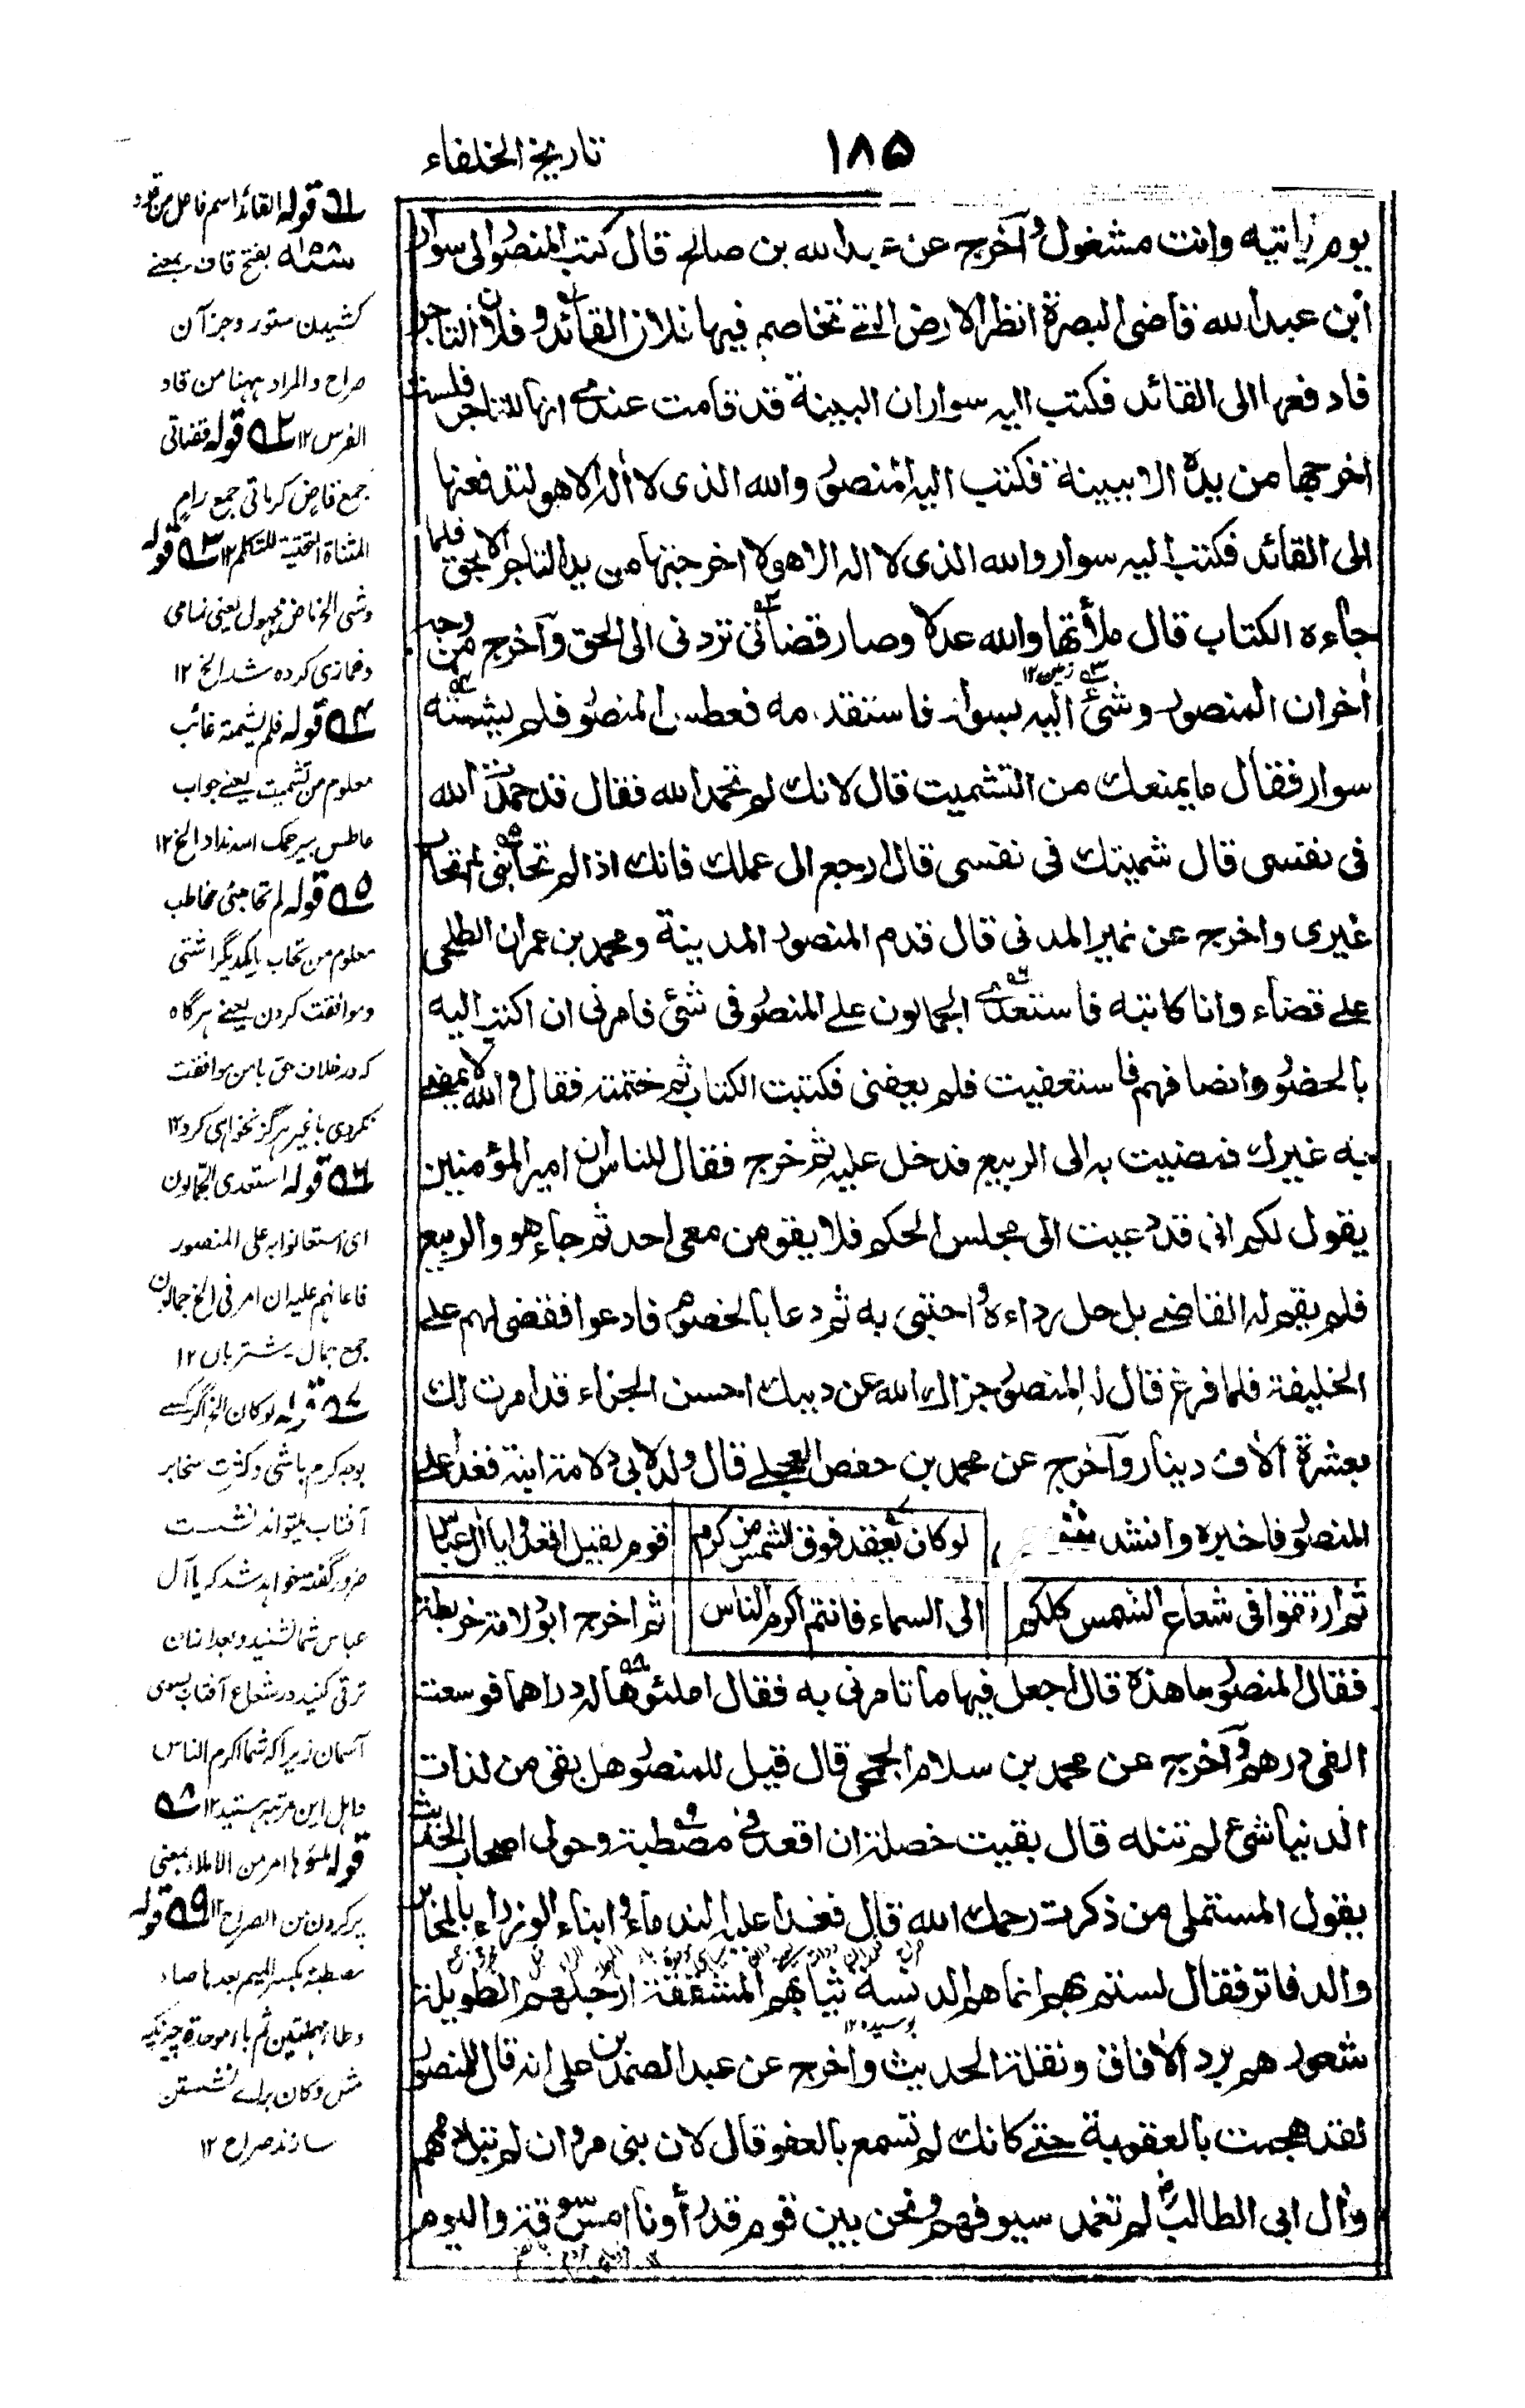 ١٨٥
تاريخ الخلفاء
يوم ياتيه وانت مشغول وآخرج عن عبدالله بن صالح قال كتب المنصور الى سوار
ابن عبدالله قاضى البصرة انظر الارض التے تخاصم فيها فلان القائد وفلان التاجر
فادفعها الى القائد فكتب اليه سوار ان البينة قد قامت عندے انها للتاجر فلست
اخرجها من يده الا ببينة فكتب اليه المنصور والله الذى لا اله الا هو لتدفعنها
الى القائد فكتب اليه سوار والله الذى لا اله الا هو لا اخرجتها من يد التاجر الا بحق فلما
جاءه الكتاب قال ملأتها والله عدلا وصار قضاتى تردنى الى الحق وآخرج من وجه
اخران المنصور وشئ اليه بسوار فاستقدمه فعطس المنصور فلم يشمته
سوار فقال ما يمنعك من التشميت قال لانك لم تحمد الله فقال قد حمدت الله
فى نفسى قال شمتك فى نفسى قال ارجع الى عملك فانك اذا لم تحابنى لم تحاب
غيرى واخرج عن نمير المدنى قال قدم المنصور المدينة ومحمد بن عمران الطلحى
علے قضاء وانا كاتبه فاستعدے الجمالون علے المنصور فى شئ فامرنى ان اكتب اليه
بالحضور وانصافهم فاستعفيت فلم يعفنى فكتبت الكتاب ثم ختمته فقال والله لا يمضے
به غيرك فمضيت به الى الربيع فدخل عليه ثم خرج فقال للناس ان امير المؤمنين
يقول لكم انى قد دعيت الى مجلس الحكم فلا يقومن معى احد ثم جاء هو والربيع
فلم يقم له القاضے بل حل رداءه واحتبى به ثم دعا بالخصوم فادعوا فقضى لهم علے
الخليفة فلما فرغ قال له المنصور جزاك الله عن دينك احسن الجزاء قد امرت لك
بعشرة الاف دينار وآخرج عن محمد بن حفص العجلے قال ولد لابى دلامة ابنة فغدا علے
المنصور فاخبره وانشد لو كان يقعد فوق الشمس من كرم قوم لقيل اقعدوا يا آل عباس
ثم ارتقوا فى شعاع الشمس كلكم الى السماء فانتم اكرم الناس ثم اخرج ابو دلامة خريطة
فقال المنصور ما هذه قال اجعل فيها ما تامرنى به فقال املئوها له دراهما فوسعت
الفى درهم وآخرج عن محمد بن سلام الجمحى قال قيل للمنصور هل بقى من لذات
الدنيا شئ لم تنله قال بقيت خصلة ان اقعد فى مصطبة وحولى اصحاب الحديث
يقول المستملى من ذكرت رحمك الله قال فغدا عليه الندماء وابناء الوزراء بالمحابر
والدفاتر فقال لستم بهم انما هم الدنسة ثيابهم المتشققة ارجلهم الطويلة
بوسيده ١٢
شعورهم برد الآفاق ونقلة الحديث واخرج عن عبد الصمد بن على انه قال للمنصور
لقد هجمت بالعقوبة حتے كانك لم تسمع بالعفو قال لان بنى مروان لم تبل رممهم
وآل ابى الطالب لم تغمد سيوفهم ونحن بين قوم قد رأونا امس سوقة واليوم
قوله القائد اسم فاعل من قود
بفتح قاف بمعنے
كشيدن ستور وجز آن
صراح والمراد ههنا من قاد
الفرس ١٢ قوله قضاتى
جمع قاض كرماتى جمع رام
المثناة التحتية للتكلم ١٢ قوله
وشى الخ ماض مجهول يعنى نمامى
وغمازى كرده شد الخ ١٢
قوله فلم يشمته غائب
معلوم من تشميت يعنے جواب
عاطس بيرحمك الله نداد الخ ١٢
قوله لم تحابنى مخاطب
معلوم من تحاب بايكديگر آشتى
وموافقت كردن يعنے هرگاه
كه در خلاف حق با من موافقت
نكردى با غير هرگز نخواهى كرد ١٢
قوله استعدى الجمالون
اى استعانوا به على المنصور
فاعانهم عليه ان امرنى الخ جمالون
جمع جمال شتربان ١٢
قوله لو كان الخ اگر كسے
بوجه كرم باشى وكثرت سخا بر
آفتاب ميتواند نشست
ضرور گفته خواهد شد كه يا آل
عباس شما نشينيد وبعد ازان
ترقى كنيد در شعاع آفتاب بسوى
آسمان زيرا كه شما اكرم الناس
واهل اين مرتبه هستيد ١٢
قوله املئوها امر من الاملاء بمعنى
پر كردن من الصراح ١٢ قوله
مصطبة بكسر الميم بعدها صاد
وطاء مهملتين ثم باء موحدة چيزيكه
مثل دكان براے نشستن
سازند صراح ١٢